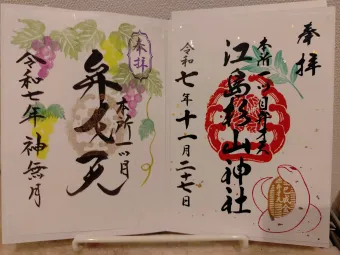 奉拝
本所一ツ目弁才天
江島杉山神社
令和七年十一月二十七日
奉拝
本所一ツ目
弁才天
令和七年 神無月